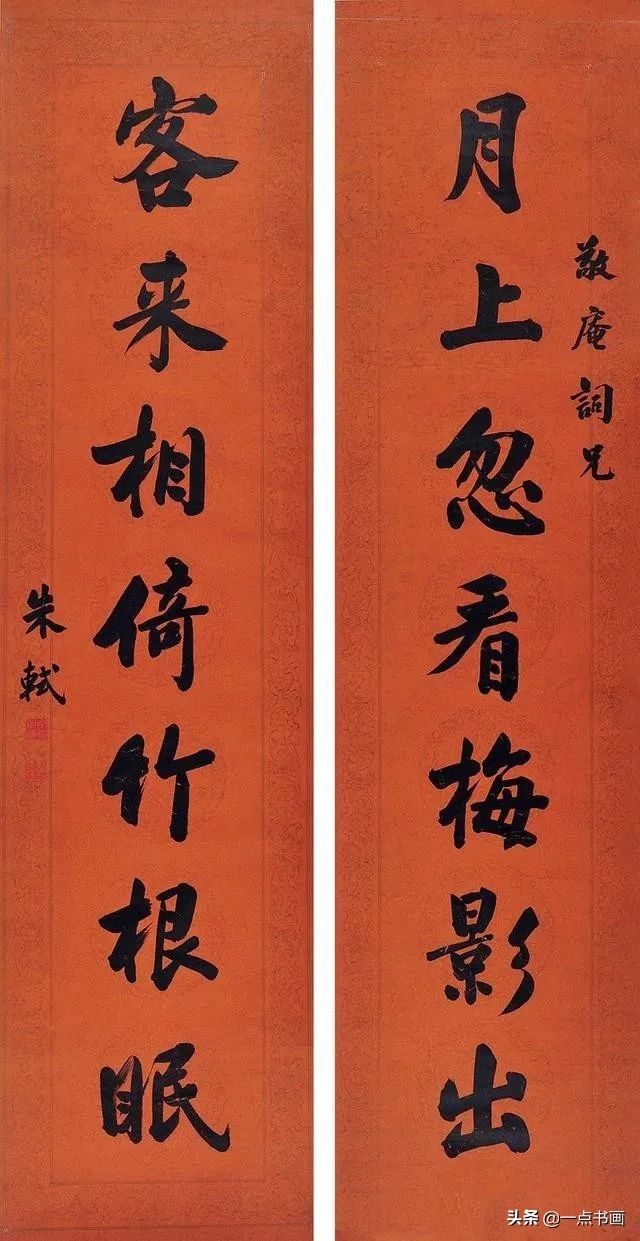 敬庵詞兄
月上忽看梅影出
客来相倚竹根眠
朱軾
头条 @一点书画